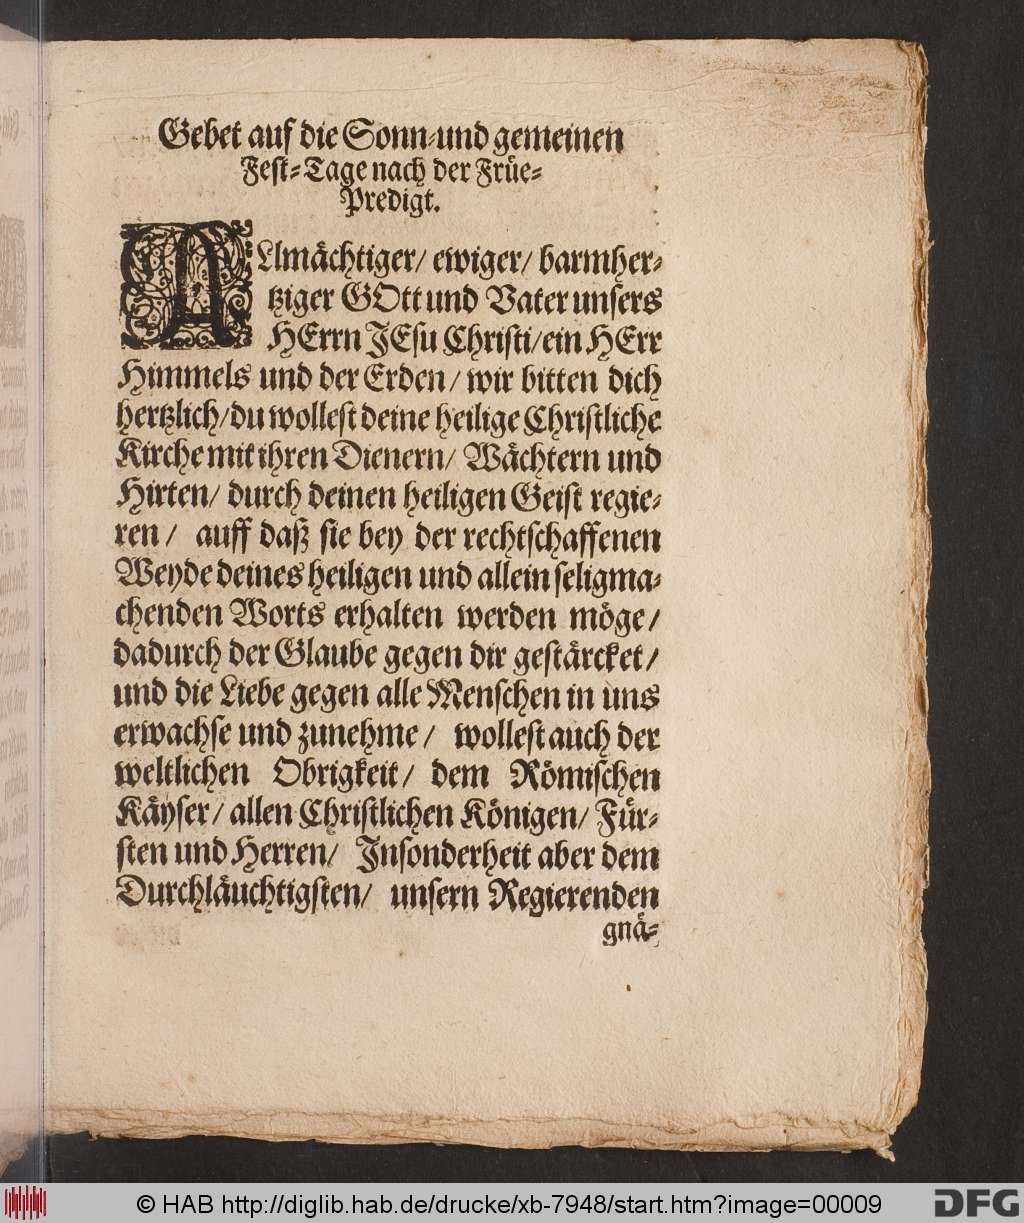 Gebet auf die Sonn-und gemeinen
Fest-Tage nach der Früe-
Predigt.
ALlmächtiger/ ewiger/ barmher-
tziger GOtt und Vater unsers
HErrn JEsu Christi/ein HErr
Himmels und der Erden/ wir bitten dich
hertzlich/du wollest deine heilige Christliche
Kirche mit ihren Dienern/ Wächtern und
Hirten/ durch deinen heiligen Geist regie-
ren/ auff daß sie bey der rechtschaffenen
Weyde deines heiligen und allein seligma-
chenden Worts erhalten werden möge/
dadurch der Glaube gegen dir gestärcket/
und die Liebe gegen alle Menschen in uns
erwachse und zunehme/ wollest auch der
weltlichen Obrigkeit/ dem Römischen
Käyser/ allen Christlichen Königen/ Für-
sten und Herren/ Insonderheit aber dem
Durchläuchtigsten/ unsern Regierenden
gnä-
© HAB http://diglib.hab.de/drucke/xb-7948/start.htm?image=00009
DFG